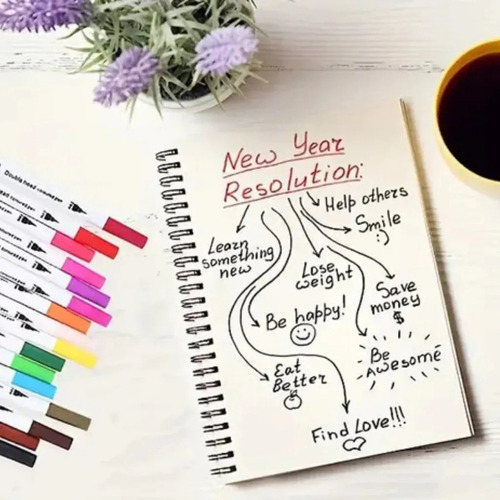 New Year
Resolution:
Help others
Smile
:)
Learn
something
new
Lose
weight
Save
money
$
Be happy!
Be
Awesome
Eat
Better
Find Love!!!